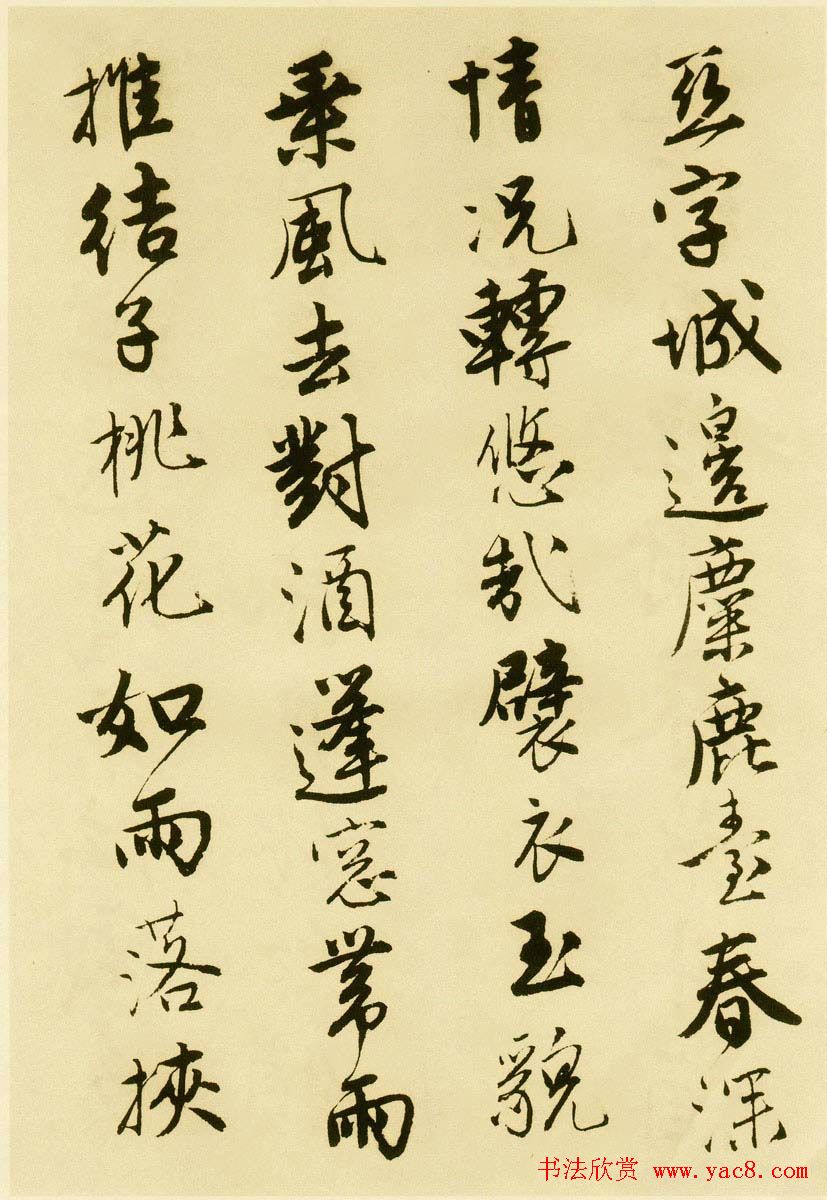 亞字城邊麋鹿臺春深
情况轉悠哉襞衣玉貌
乘風去對酒蓬窓帶雨
推結子桃花如雨落挾
书法欣赏 www.yac8.com